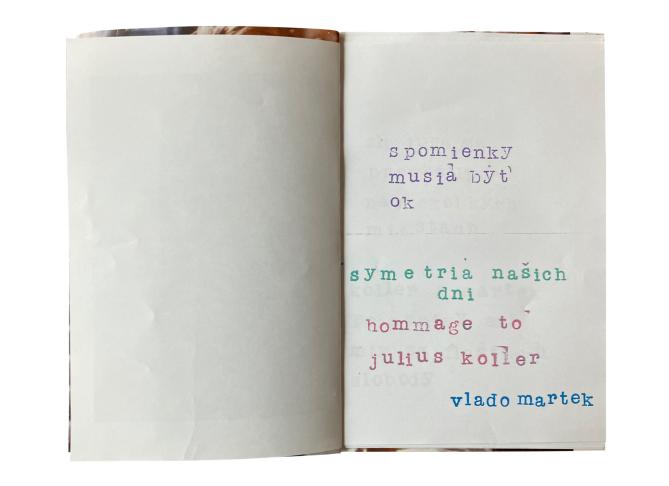 spomienky
musia byť
ok
symetria našich
dni
hommage to
julius koller
vlado martek